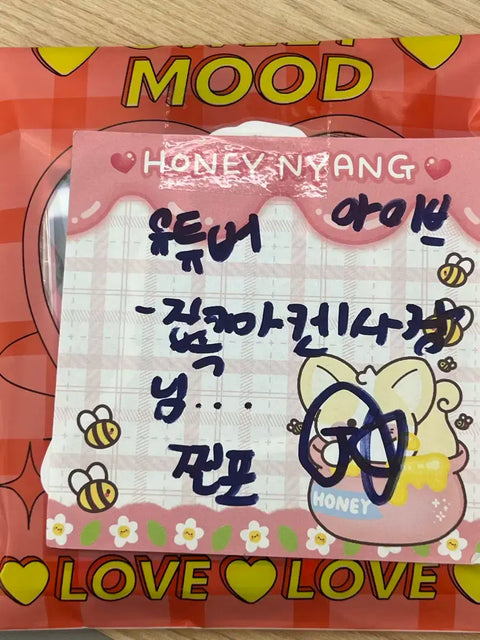 MOOD
HONEY NYANG
유튜버 아이브
님...
찐포
HONEY
LOVE LOVE